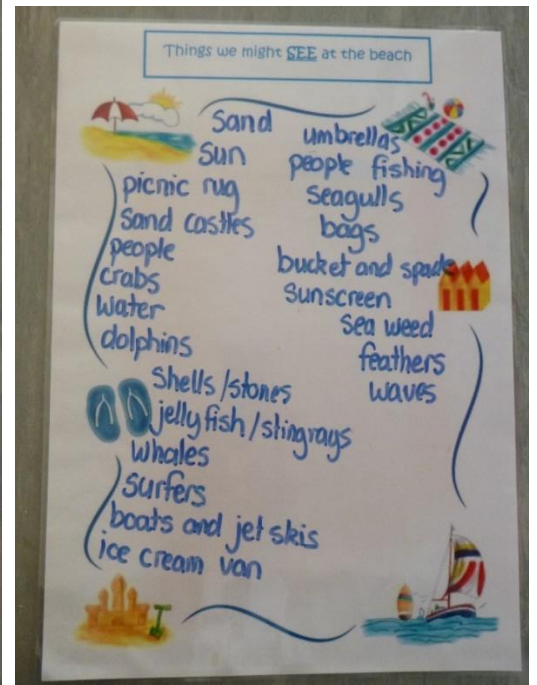 Things we might SEE at the beach
Sand
Sun
picnic rug
Sand castles
people
crabs
Water
dolphins
Shells/stones
jelly fish/stingrays
Whales
Surfers
boats and jet skis
ice cream van
umbrellas
people fishing
seagulls
bags
bucket and spade
sunscreen
sea weed
feathers
waves